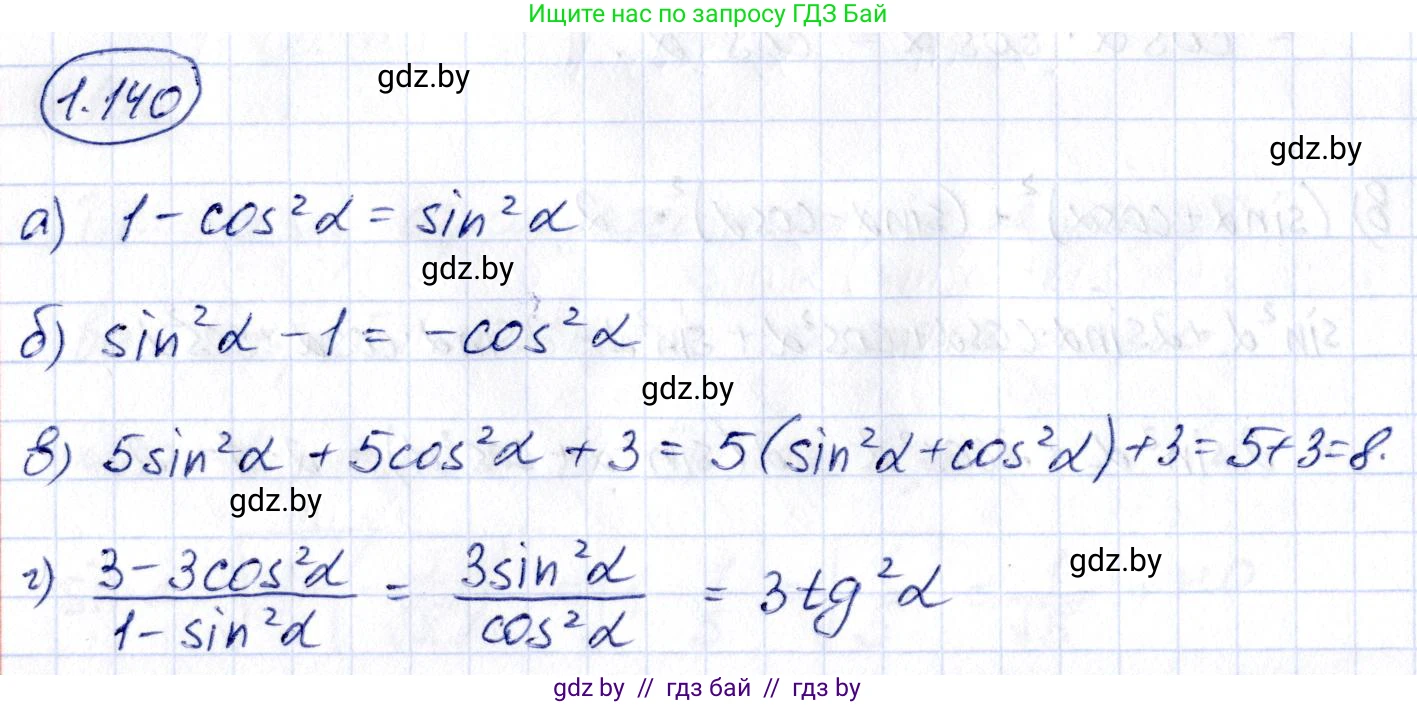 Ищите нас по запросу ГДЗ Бай
1.140
gdz.by
gdz.by
а) 1 - cos²α = sin²α
gdz.by
б) sin²α - 1 = -cos²α
gdz.by
в) 5sin²α + 5cos²α + 3 = 5(sin²α + cos²α) + 3 = 5+3=8.
gdz.by
gdz.by
г) (3 - 3cos²α)/(1 - sin²α) = (3sin²α)/(cos²α) = 3tg²α
gdz by // гдз бай // гдз by